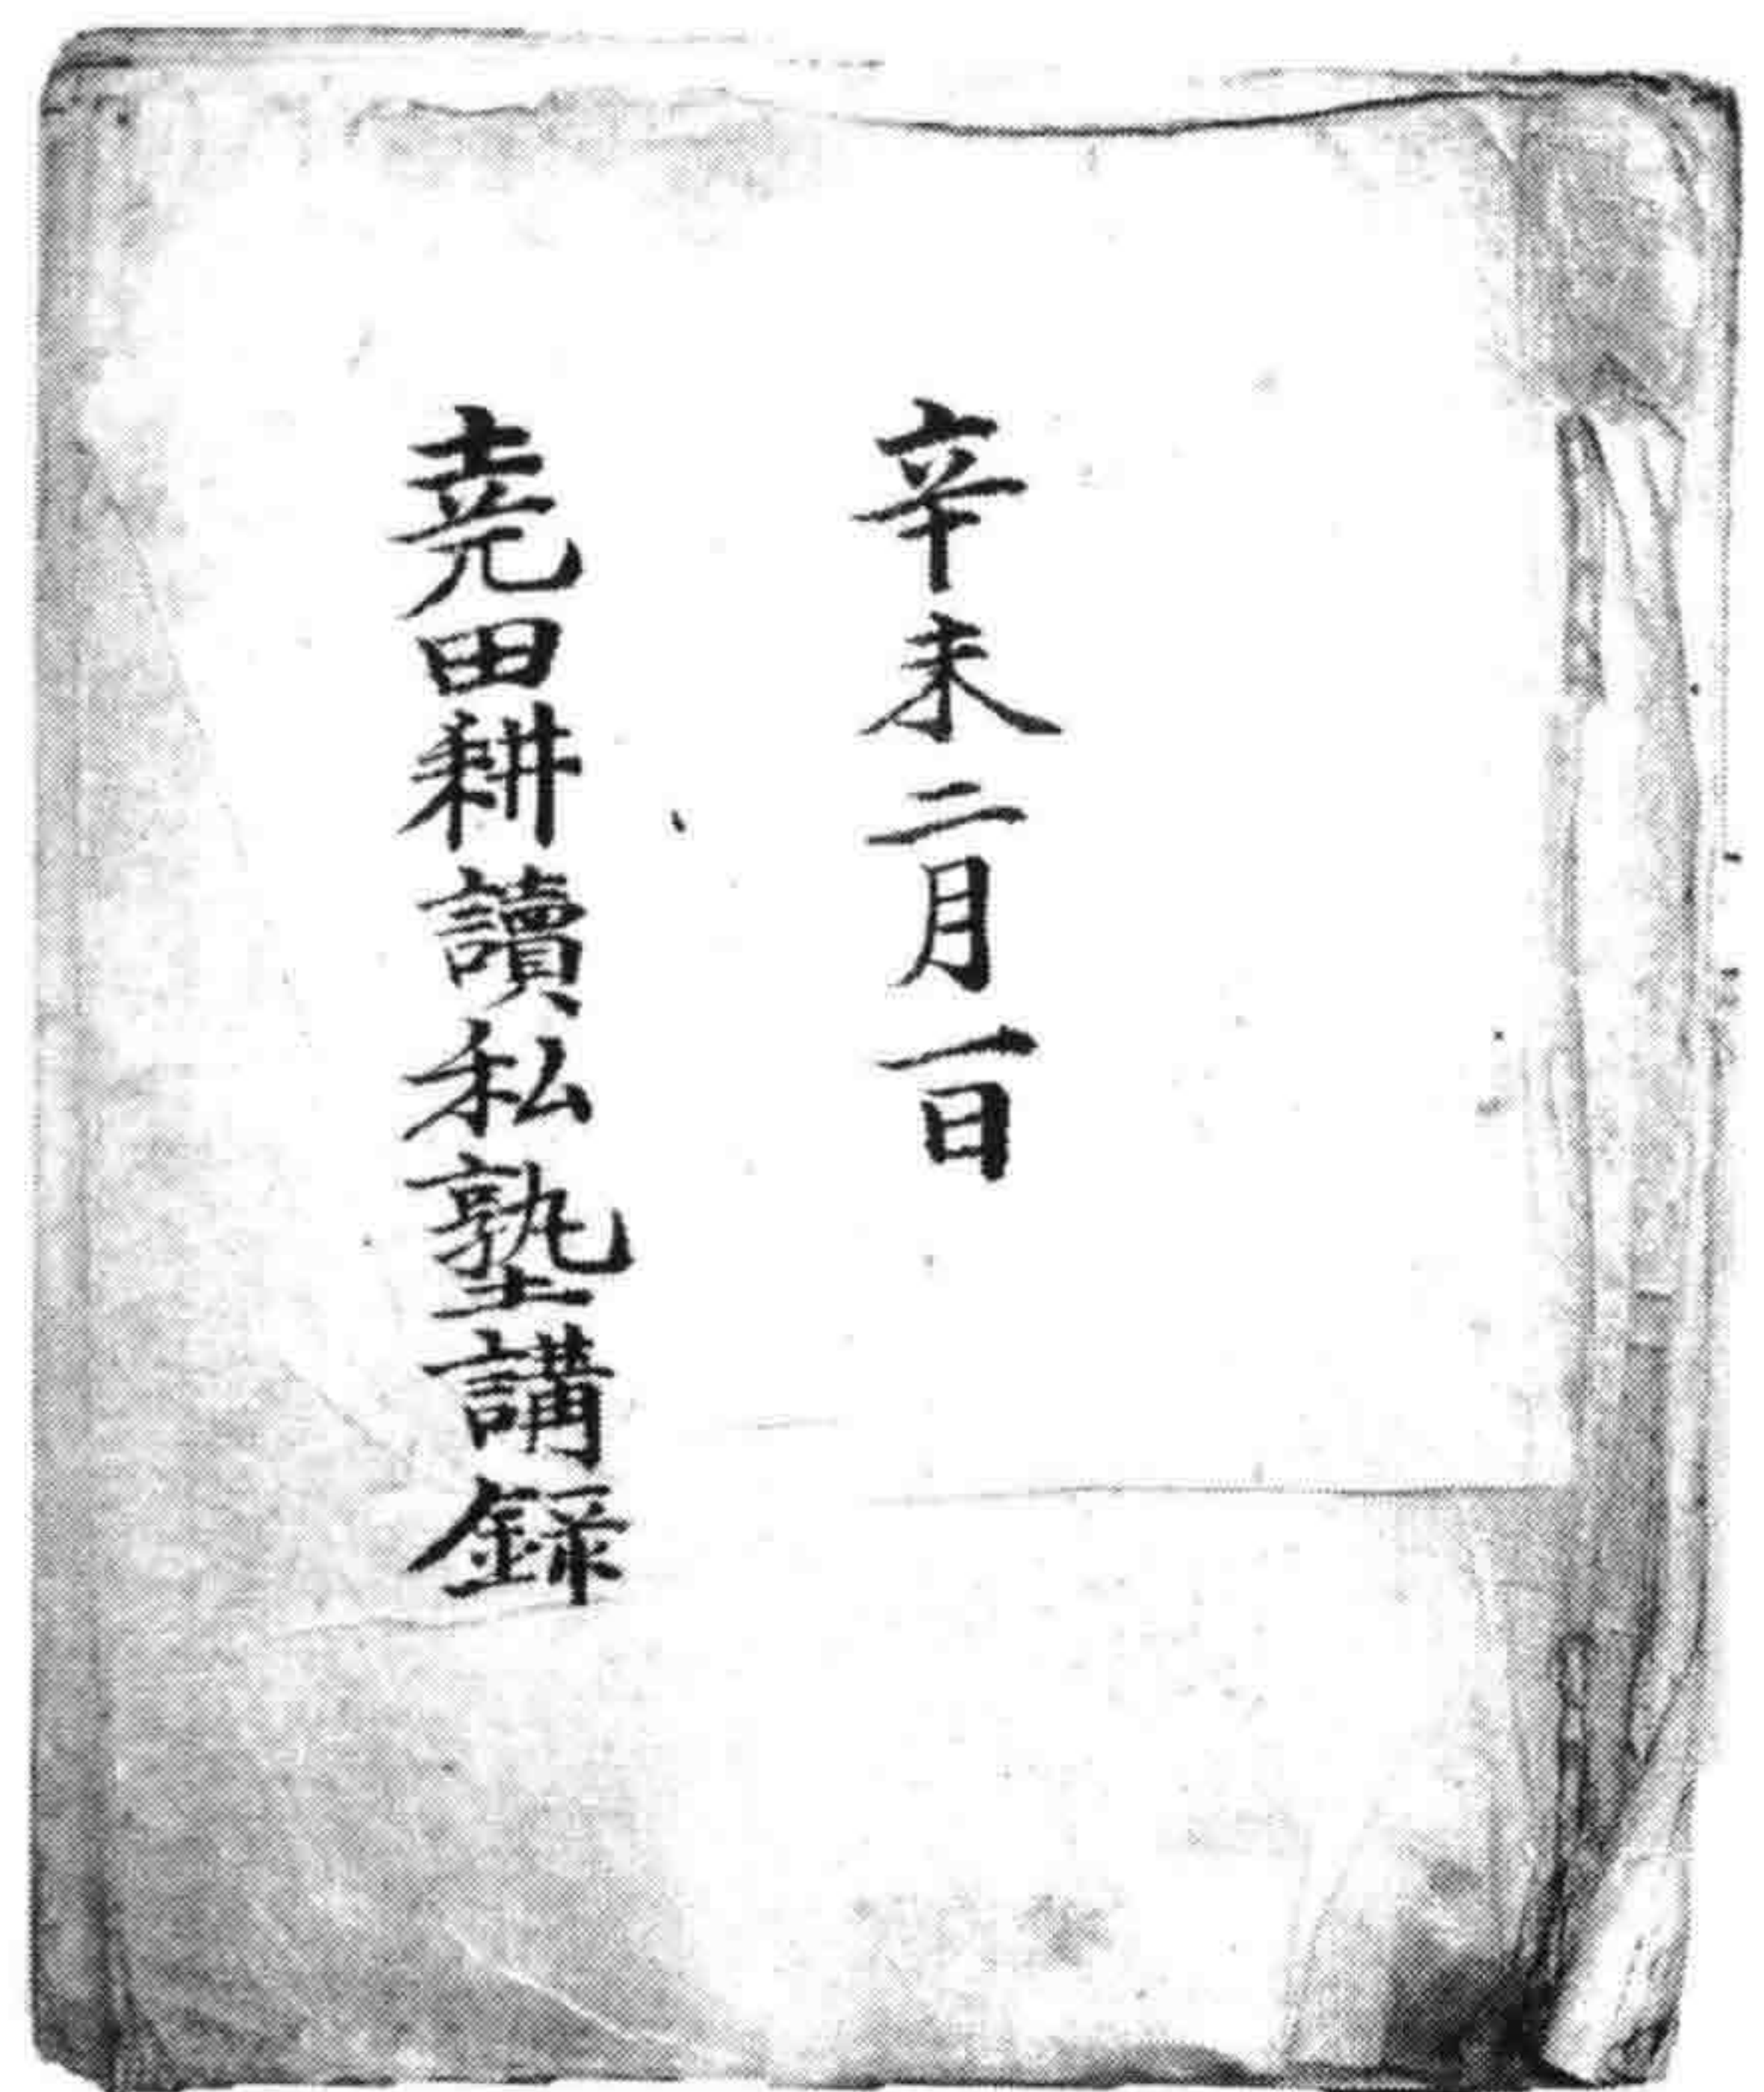 辛未二月一日
堯田耕讀私塾講錄